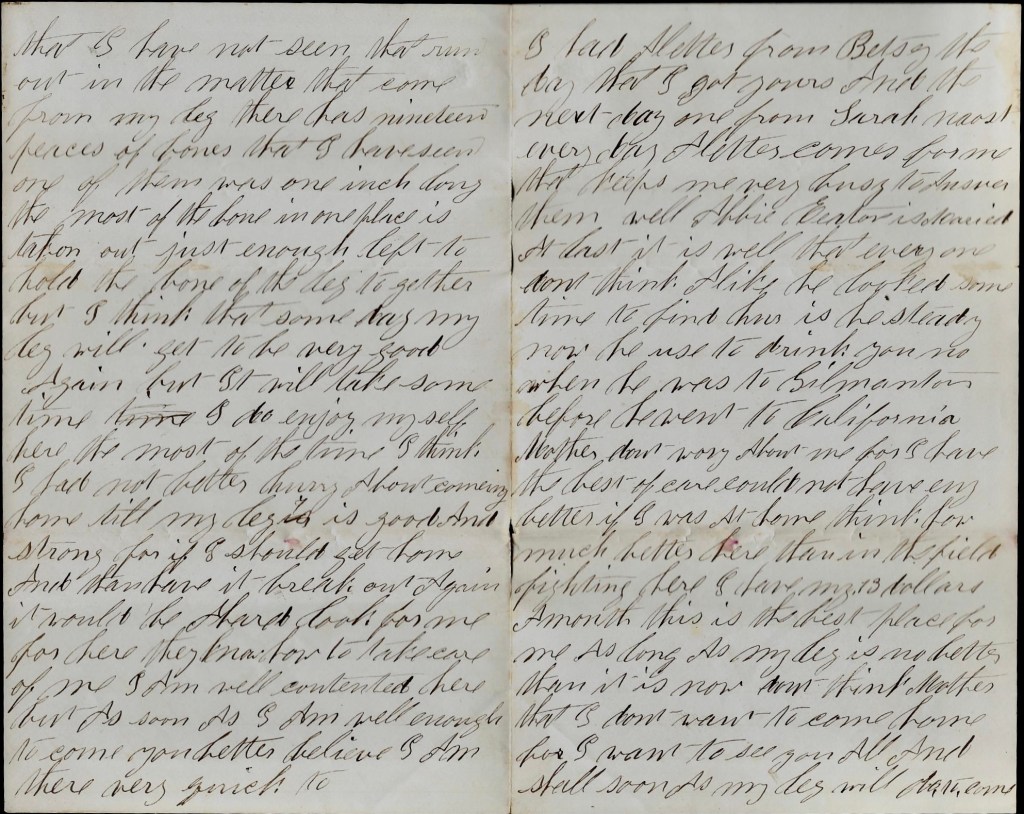 that I have not seen that run
out in the matter that come
from my leg there has nineteen
peaces of bones that I have seen
one of them was one inch long
the most of the bone in one place is
taken out just enough left to
hold the bone of the leg to gether
but I think that some day my
leg will get to be very good
Again but It will take some
time time I do enjoy my self
here the most of the time I think
I had not better hurry About comeing
home till my leg is is good And
strong for if I should get home
And than have it break out Again
it would be A hard look for me
for here they know how to take care
of me I Am well contented here
but As soon As I Am well enough
to come you better believe I Am
there very quick to
I had A letter from Betsey the
day that I got yours And the
next day one from Sarah most
every day A letter comes for me
that keeps me very busy to Answer
them well Abbie is
At last it is well that every one
dont think Alike he looked some
time to find hur is he steady
now he use to drink you no
when he was to Gilmanton
before he went to California
Mother dont wory About me for I have
the best of care could not have eny
better if I was At home think how
much better here than in the field
fighting here I have my 13 dollars
A month this is the best place for
me As long As my leg is no better
than it is now dont think Mother
that I dont want to come home
for I want to see you All And
shall soon As my leg will come